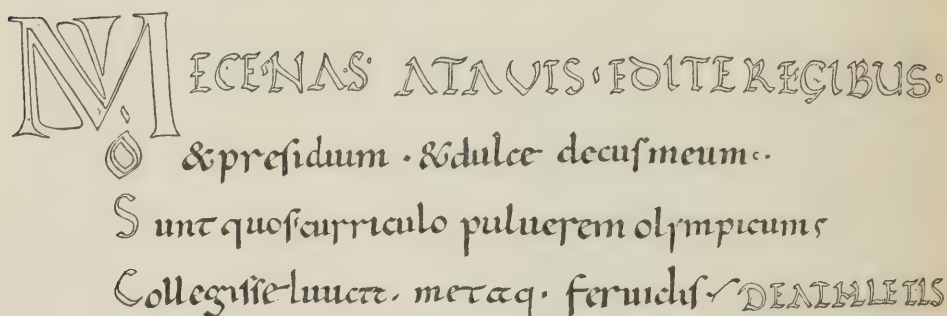 MECENAS· ATAVIS· EDITE REGIBUS·
O &presidium · &dulce decus meum··
Sunt quos curriculo puluerem olympicum;
Collegisse iuuat· metaq· feruidis DEATHLETIS